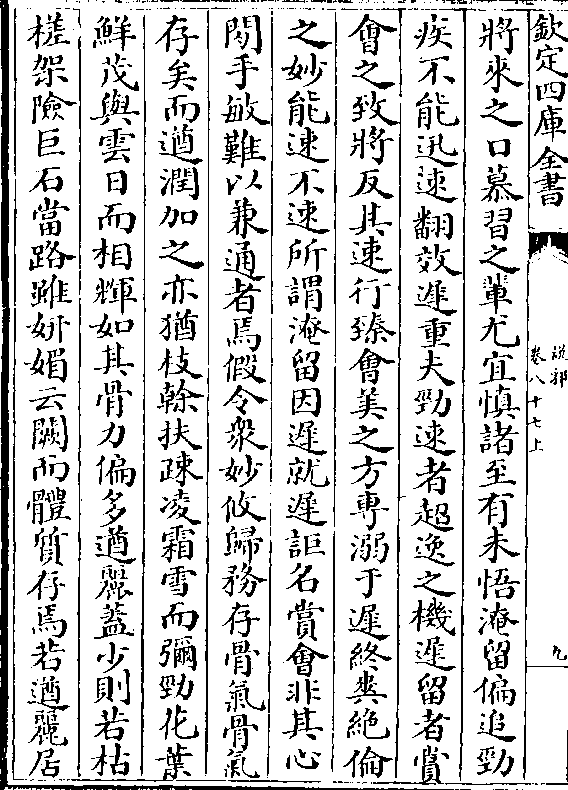 欽定四庫全書
說郛
卷八十七上
九
將來之口慕習之輩尤宜慎諸至有未悟淹留偏追勁
疾不能迅速翻效遲重夫勁速者超逸之機遲留者賞
會之致將反其速行臻會美之方專溺于遲終爽絕倫
之妙能速不速所謂淹留因遲就遲詎名賞會非其心
閑手敏難以兼通者焉假令衆妙攸歸務存骨氣骨氣
存矣而遒潤加之亦猶枝榦扶疎凌霜雪而彌勁花葉
鮮茂與雲日而相輝如其骨力偏多遒麗蓋少則若枯
槎架險巨石當路雖妍媚云闕而體質存焉若遒麗居